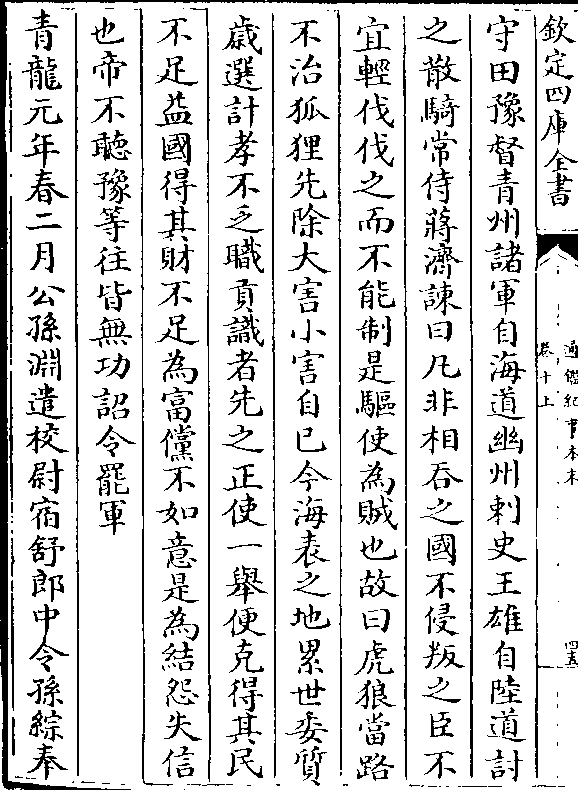 欽定四庫全書
通鑑紀事本末
卷十上
四五
守田豫督青州諸軍自海道幽州刺史王雄自陸道討
之散騎常侍蔣濟諫曰凡非相吞之國不侵叛之臣不
宜輕伐伐之而不能制是驅使為賊也故曰虎狼當路
不治狐狸先除大害小害自已今海表之地累世委質
歲選計孝不乏職貢議者先之正使一舉便克得其民
不足益國得其財不足為富儻不如意是為結怨失信
也帝不聽豫等往皆無功詔令罷軍
青龍元年春二月公孫淵遣校尉宿舒郎中令孫綜奉